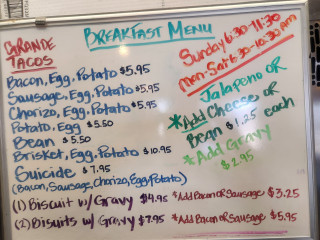 BREAKFAST MENU
GRANDE
TACOS
Sunday 6:30-11:30
Mon-Sat 6:30-10:30 AM
Bacon, Egg, Potato $5.95
Sausage, Egg, Potato $5.95
Chorizo, Egg, Potato $5.95
Potato, Egg $5.50
Bean $5.50
Brisket, Egg, Potato $10.95
Suicide $7.95
(Bacon, Sausage, Chorizo, Egg, Potato)
Jalapeno OR
*Add Cheese or
Bean $1.25 each
*Add Gravy
$2.95
(1) Biscuit w/ Gravy $4.95 *Add Bacon or Sausage $3.25
(2) Bisuits w/ Gravy $7.95 *Add Bacon or Sausage $5.95